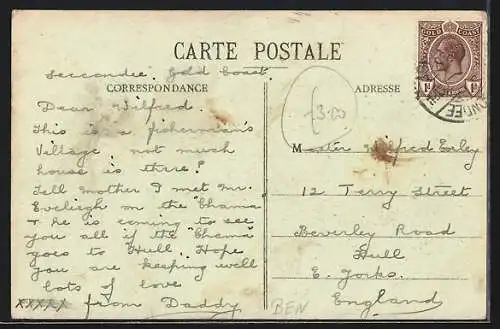 CARTE POSTALE
Seccondee. Gold Coast.
CORRESPONDANCE
Dear Wilfred.
This is a fisherman's
Village not much
house is there!
Tell Mother I met Mr.
Eveleigh on the "Chama"
& he is coming to see
you all if the "Chama"
goes to Hull. Hope
you are keeping well
lots of love
xxxxx from Daddy
ADRESSE
£3.00
Master Wilfred
12 Terry Street
Beverley Road
Hull
E. Yorks.
England
BEN
GOLD COAST
1D 1D
ONDEE